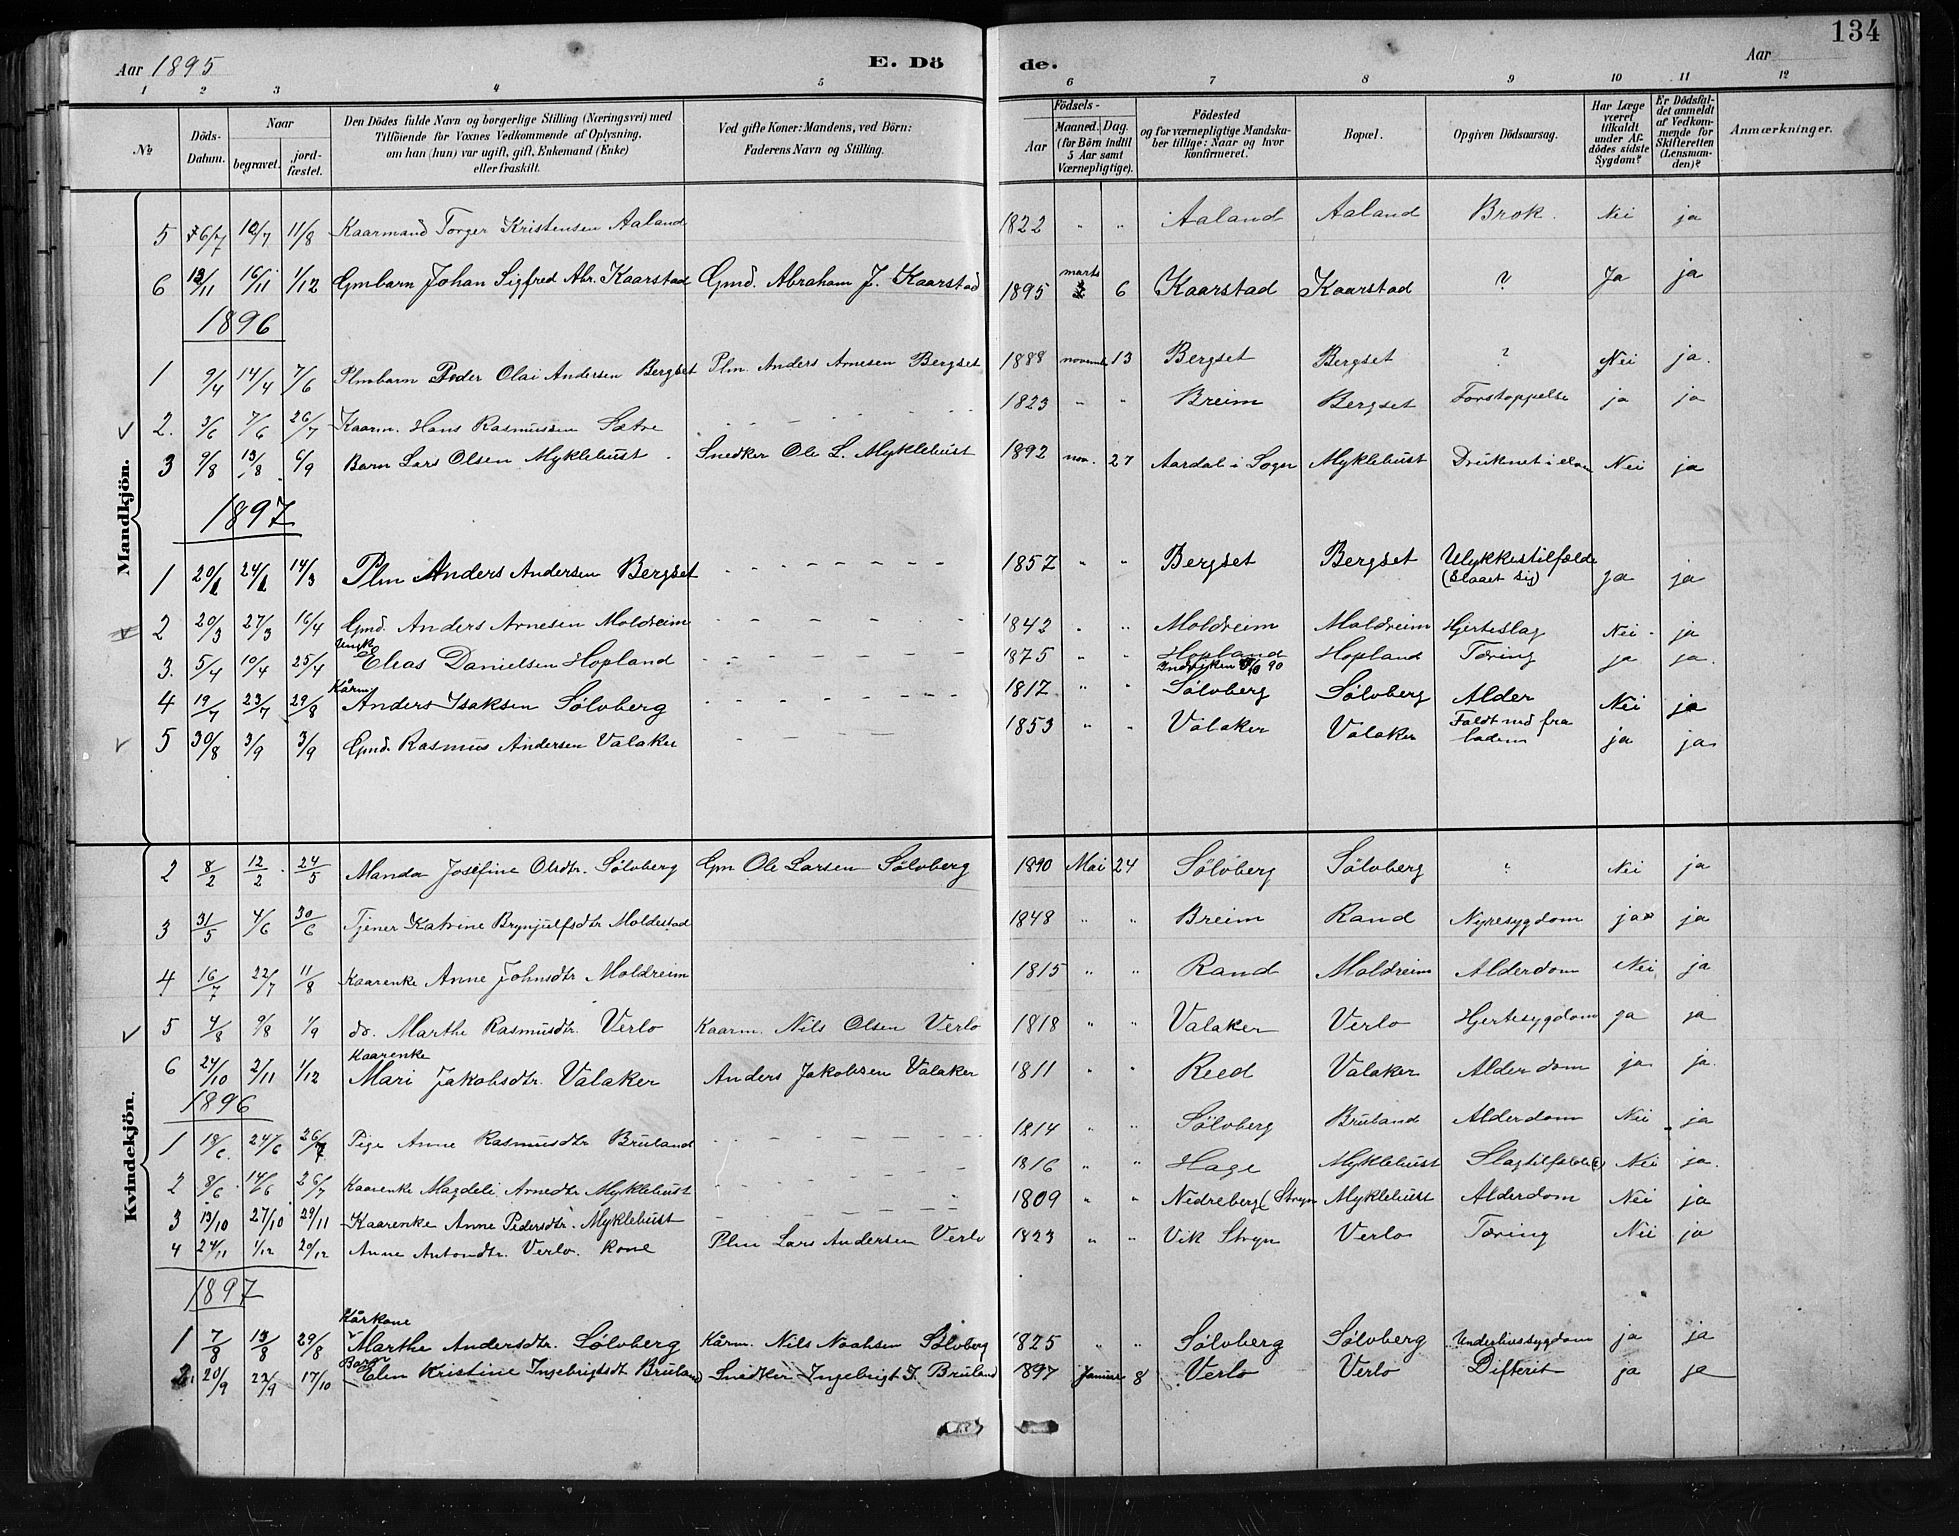 134
Aar 1895 E. Dö de. Aar
1 2 3 4 5 6 7 8 9 10 11 12
№ Döds-Datum. Naar begravet. jordfæstet. Den Dödes fulde Navn og borgerlige Stilling (Næringsvei) med Tilföiende for Voxnes Vedkommende af Oplysning, om han (hun) var ugift, gift, Enkemand (Enke) eller fraskilt. Ved gifte Koner: Mandens, ved Börn: Faderens Navn og Stilling. Födsels- Aar Maaned. Dag. (for Börn indtil 5 Aar samt Værnepligtige). Födested og for værnepligtige Mandskaber tillige: Naar og hvor Konfirmeret. Bopæl. Opgiven Dödsaarsag. Har Læge været tilkaldt under Afdödes sidste Sygdom? Er Dödsfaldet anmeldt af Vedkommende for Skifteretten (Lensmanden)? Anmærkninger.
Mandkjön.
5 6/7 12/7 11/8 Kaarmand Torger Kristensen Aaland 1822 " " Aaland Aaland Brok. Nei ja
6 13/11 16/11 1/12 Gmbarn Johan Sigfred Abr. Kaarstad Gmd. Abraham J. Kaarstad 1895 marts 6 Kaarstad Kaarstad ? Ja ja
1896
1 9/4 14/4 7/6 Plmbarn Peder Olai Andersen Bergset Plm. Anders Arnesen Bergset 1888 novemb 13 Bergset Bergset ? Nei ja.
2. 3/6 7/6 26/7 Kaarm. Hans Rasmussen Sætre 1823 " " Breim Bergset Forstoppelse ja ja
3 9/8 13/8 6/9 Barn Lars Olsen Myklebust. Snedker Ole L. Myklebust 1892 nov. 27 Aardal i Sogn Myklebust Druknet i elven Nei ja
1897
1 20/1 24/1 14/3 Plm Anders Andersen Bergset 1857 " " Bergset Bergset Ulykkestilfælde (slaaet sig) ja ja
2 20/3 27/3 16/4 Gmd. Anders Arnesen Moldreim 1842 " " Moldreim Moldreim Hjerteslag Nei ja
3. 5/4 10/4 25/4 Ungk Elias Danielsen Hopland 1875 " " Hopland Indviken 90 Hopland Tæring ja ja.
4 19/7 23/7 29/8 Kårm Anders Isaksen Sølvberg 1817 " " Sølvberg Sølvberg Alder Nei ja
5 30/8 3/9 3/9 Gmd. Rasmus Andersen Valaker 1853 " " Valaker Valaker Faldt ned fra laden ja ja
Kvindekjön.
2 8/2 12/2 24/5 Manda Josefine Olsdtr. Sølvberg Gm Ole Larsen Sølvberg 1890 Mai 24 Sølvberg Sølvberg ? Nei ja
3 31/5 4/6 30/6 Tjener Katrine Brynjulfsdtr Moldestad 1848 " " Breim Rand Nyresygdom ja ja
4 16/7 22/7 11/8 Kaarenke Anne Johnsdtr Moldreim 1815 " " Rand Moldreim Alderdom Nei ja
5 4/8 9/8 1/9 do. Marthe Rasmusdtr. Verlo Kaarm. Nils Olsen Verlo 1818 " " Valaker Verlo Hjertesygdom ja ja
6 24/10 2/11 1/12 Kaarenke Mari Jakobsdtr. Valaker Anders Jakobsen Valaker 1811 " " Reed Valaker Alderdom ja ja.
1896
1 18/6 24/6 26/7 Pige Anne Rasmusdtr Bruland 1814 " " Sølvberg Bruland Alderdom Nei ja
2 8/6 14/6 26/7 Kaarenke Magdeli Arnedtr Myklebust 1816 " " Hage Myklebust Slagtilfælde Nei ja.
3 13/10 27/10 29/11 Kaarenke Anne Pedersdtr. Myklebust 1809 " " Nedreberg (Stryn Myklebust Alderdom Nei ja
4 24/11 1/12 20/12 Anne Antondtr. Verlo. Kone Plm Lars Andersen Verlo 1823 " " Vik Stryn Verlo Tæring Nei ja
1897
1 7/8 13/8 29/8 Kårkone Marthe Andersdtr. Sølvberg Kårm. Nils Noahsen Sølvberg 1825 " " Sølvberg Sølvberg Underlivssygdom ja ja
2. 20/9 22/9 17/10 Barn Elen Kristine Ingebrigtsdt Bruland Snedker Ingebrigt I. Bruland 1897 Januar 8 Verlo Verlo Difterit ja ja